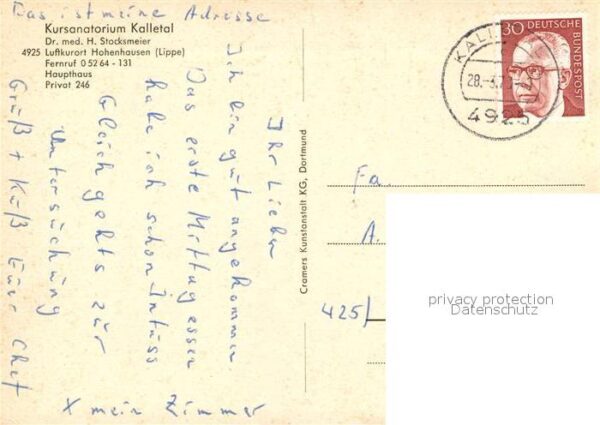 Das ist meine Adresse
Kursanatorium Kalletal
Dr. med. H. Stocksmeier
4925 Luftkurort Hohenhausen (Lippe)
Fernruf 0 52 64 - 131
Haupthaus
Privat 246
Ihr Lieben
Ich bin gut angekommen
Das erste Mittagessen
habe ich schon intuss
Gleich gehts zur
Untersuchung
Gruß + Kuß Euer Chef
x mein Zimmer
Cramers Kunstanstalt KG, Dortmund
30 DEUTSCHE BUNDESPOST
KALL
28.-3.73
4925
Fa.
A.
425/
privacy protection
Datenschutz